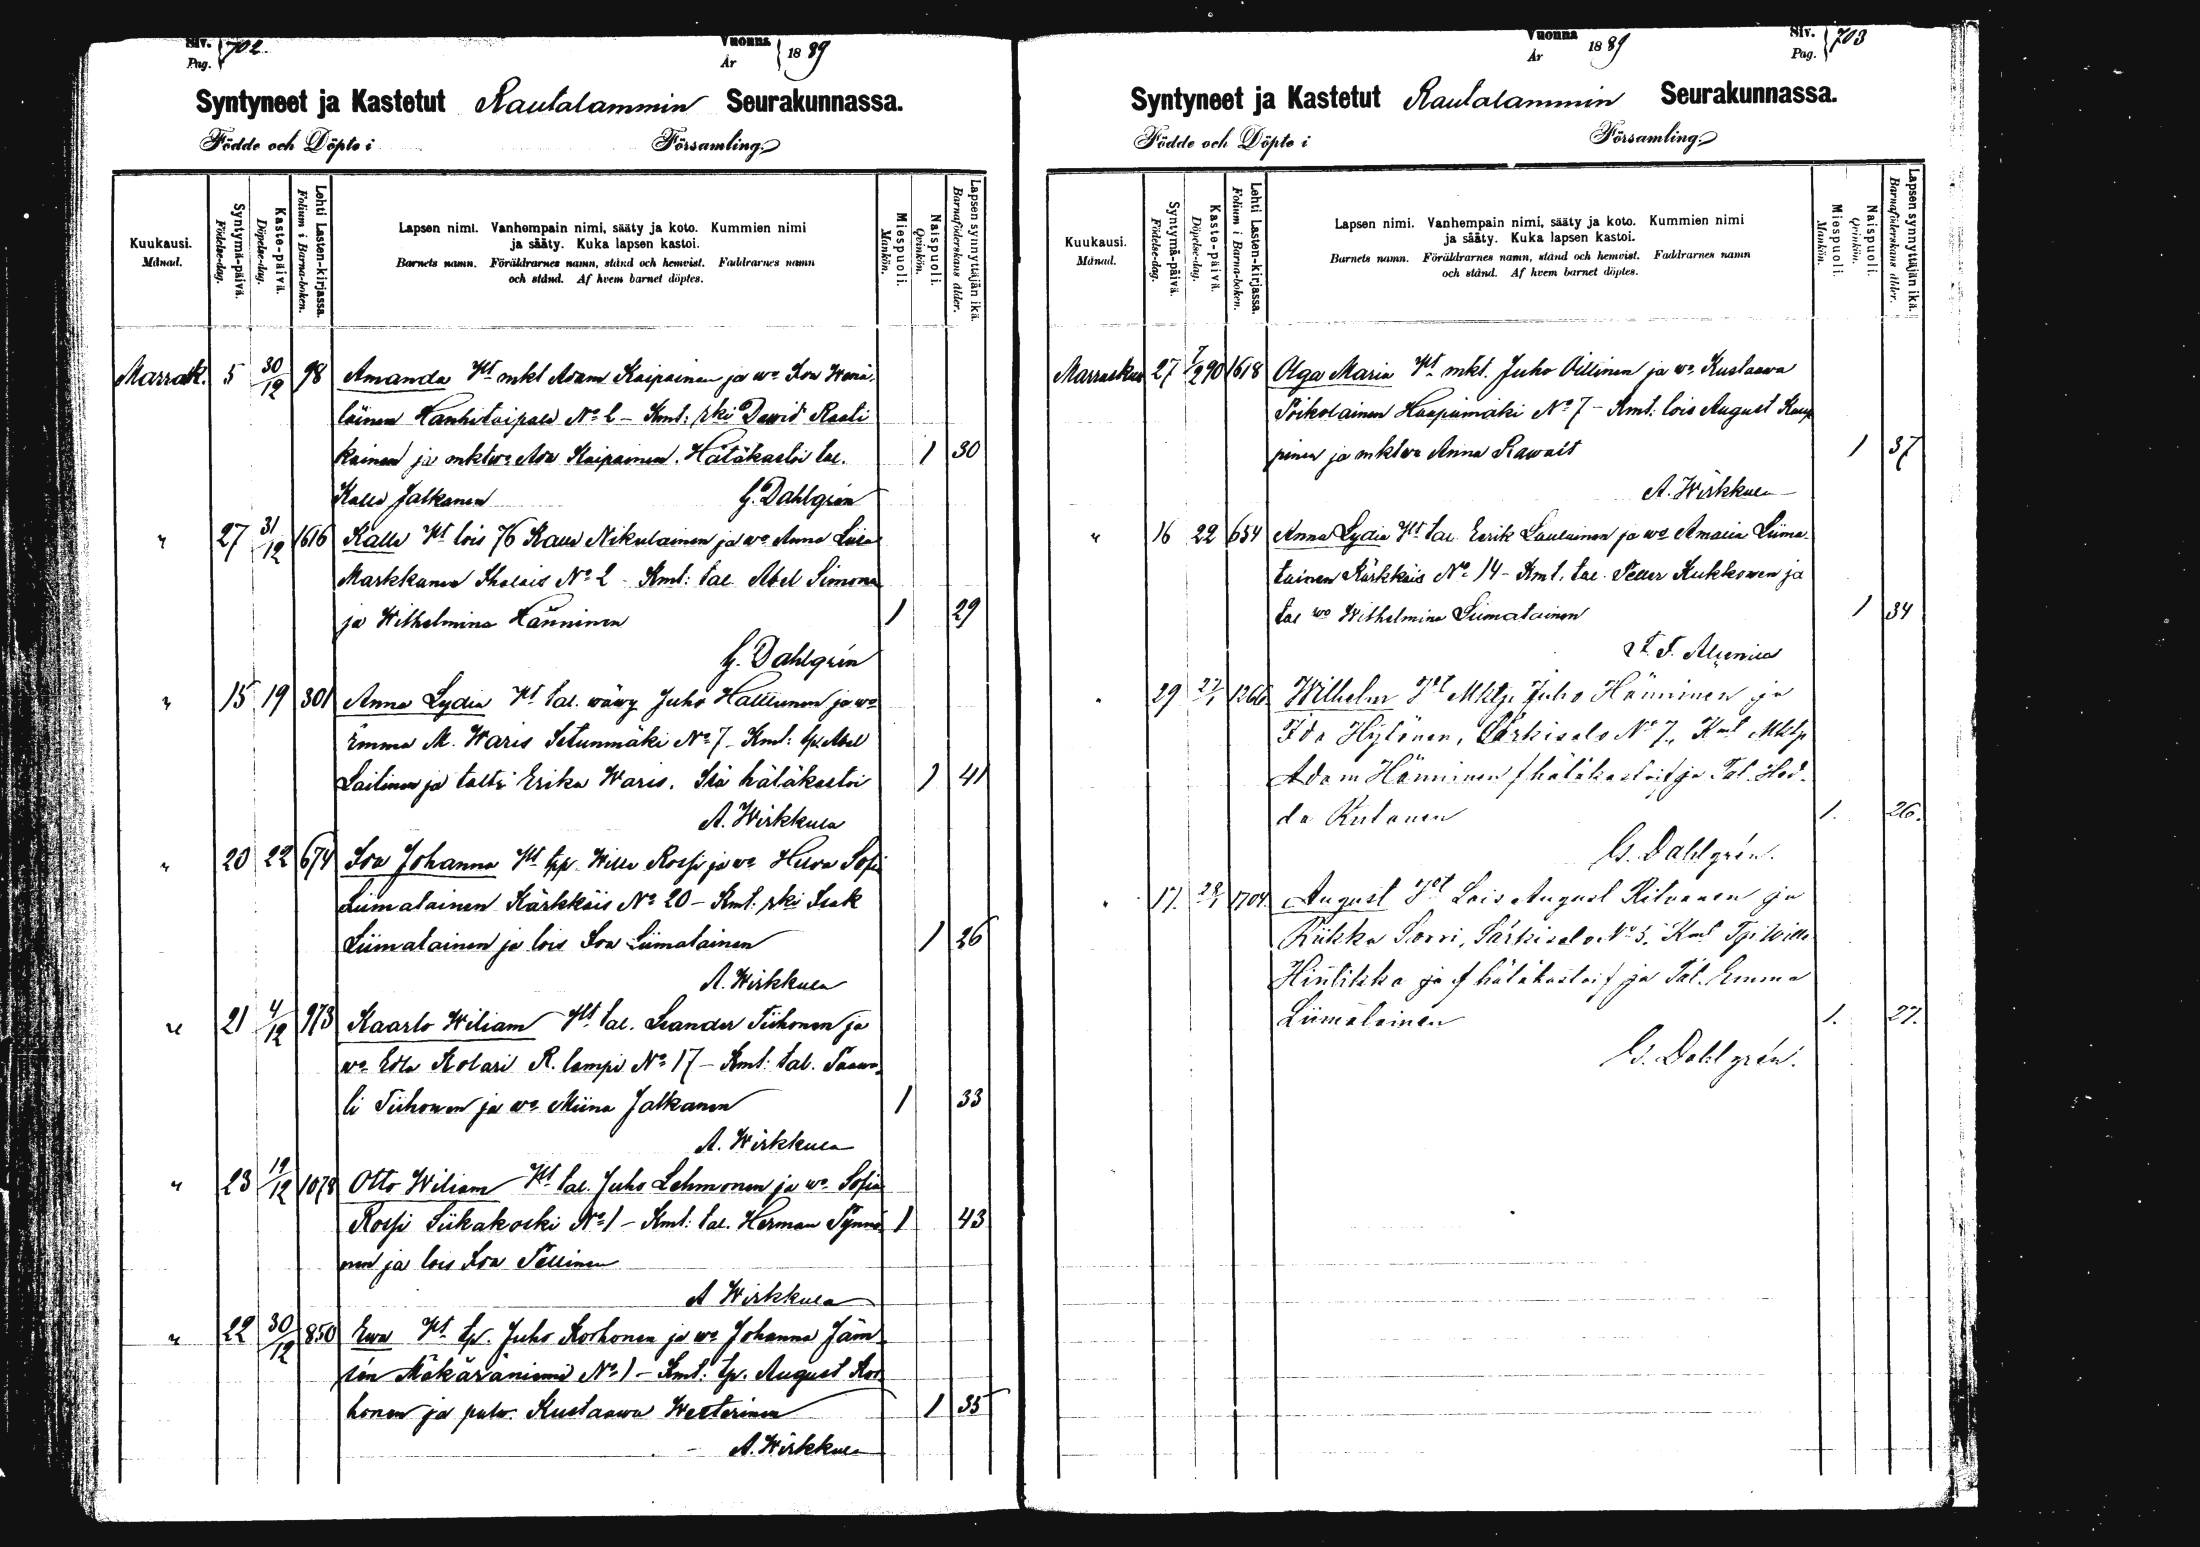 Siv. Pag. 702.
Vuonna År 1889
Syntyneet ja Kastetut Rautalammin Seurakunnassa.
Födde och Döpte i Församling.
Kuukausi. Månad.
Syntymä-päivä. Födelse-dag.
Kaste-päivä. Döpelse-dag.
Lehti Lasten-kirjassa. Folium i Barna-boken.
Lapsen nimi. Vanhempain nimi, sääty ja koto. Kummien nimi
ja sääty. Kuka lapsen kastoi.
Barnets namn. Föräldrarnes namn, stånd och hemvist. Faddrarnes namn
och stånd. Af hvem barnet döptes.
Miespuoli. Mankön.
Naispuoli. Qvinkön.
Lapsen synnyttäjän ikä. Barnaföderskans ålder.
Marrask. 5 30/12 98 Amanda Vt mkl Adam Kaipainen ja wo Eva Wenä-
läinen Hanhitaipale No 2 – Kmt: rki Dawid Raati
kainen ja mktwo Ada Kaipainen. Hätäkastoi tal. 1 30
Kalle Jalkanen G. Dahlgrén
" 27 31/12 1616 Kalle Vt lois 76 Kalle Nikulainen ja wo Anna Liisa
Markkanen No 2 – Kmt: tal. Abel Simonen
ja Wilhelmina Hänninen 1 29
G. Dahlgrén
" 15 19 301 Anna Lydia Vt tal. wäwy Juho Halttunen ja wo
Emma M. Waris Istunmäki No 7 – Kmt: tp. Abel
Laitinen ja taltr Erika Waris. Isä hätäkastoi 1 41
A. Wirkkula
" 20 22 674 Eva Johanna Vt tpp. Wille Rossi ja wo Sofia
Liimatainen Kärkkäis No 20 – Kmt: rki Isak
Liimatainen ja lois Eva Liimatainen 1 26
A. Wirkkula
" 21 4/12 973 Kaarlo Wiliam Vt tal. Leander Tiihonen ja
wo Edla Kolari R. lampi No 17 – Kmt: tal. Paawo-
li Tiihonen ja wo Miina Jalkanen 1 33
A. Wirkkula
" 23 19/12 1078 Otto Wiliam Vt tal. Juho Lehmonen ja wo Sofia
Rossi Siikakoski No 1 – Kmt: tal. Herman Pynnö- 1 43
nen ja lois Eva Pellinen
A Wirkkula
" 22 30/12 850 Ewa Vt tp. Juho Korhonen ja wo Johanna Jäm-
sén Mäkäräniemi No 1 – Kmt: tp. August Kor-
honen ja palv. Kustaawa Westerinen 1 35
A. Wirkkula
Vuonna År 1889
Siv. Pag. 703
Syntyneet ja Kastetut Rautalammin Seurakunnassa.
Födde och Döpte i Församling.
Kuukausi. Månad.
Syntymä-päivä. Födelse-dag.
Kaste-päivä. Döpelse-dag.
Lehti Lasten-kirjassa. Folium i Barna-boken.
Lapsen nimi. Vanhempain nimi, sääty ja koto. Kummien nimi
ja sääty. Kuka lapsen kastoi.
Barnets namn. Föräldrarnes namn, stånd och hemvist. Faddrarnes namn
och stånd. Af hvem barnet döptes.
Miespuoli. Mankön.
Naispuoli. Qvinkön.
Lapsen synnyttäjän ikä. Barnaföderskans ålder.
Marraskuu 27 7/2 90 1618 Olga Maria Vt mkt. Juho Oittinen ja wo Kustaawa
Poikolainen Haapamäki No 7 – Kmt: lois August Kaup
pinen ja mktwo Anna Rawait 1 37
A. Wirkkula
" 16 22 654 Anna Lydia Vt tal. Eerik Laulainen ja wo Amalia Liima-
tainen Kärkkäis No 14 – Kmt. tal. Petter Kukkonen ja
tal wo Wilhelmina Liimatainen 1 34
" 29 27/1 1266 Wilhelm Vt Mktp Juho Hänninen ja
Ida Hytönen, Särkisalo No 7, Kmt Mktp
Adam Hänninen /hätäkastoi/ ja Tal. Hed-
da Kutanen 1. 26.
G. Dahlgrén.
" 17. 28/1 1704. August Vt Lois August Ritvanen ja
Riikka Sorri, Särkisalo No 5, Kmt Wille
Hintikka ja / hätäkastoi / ja Tal. Emma
Liimatainen 1. 27.
G. Dahlgrén.